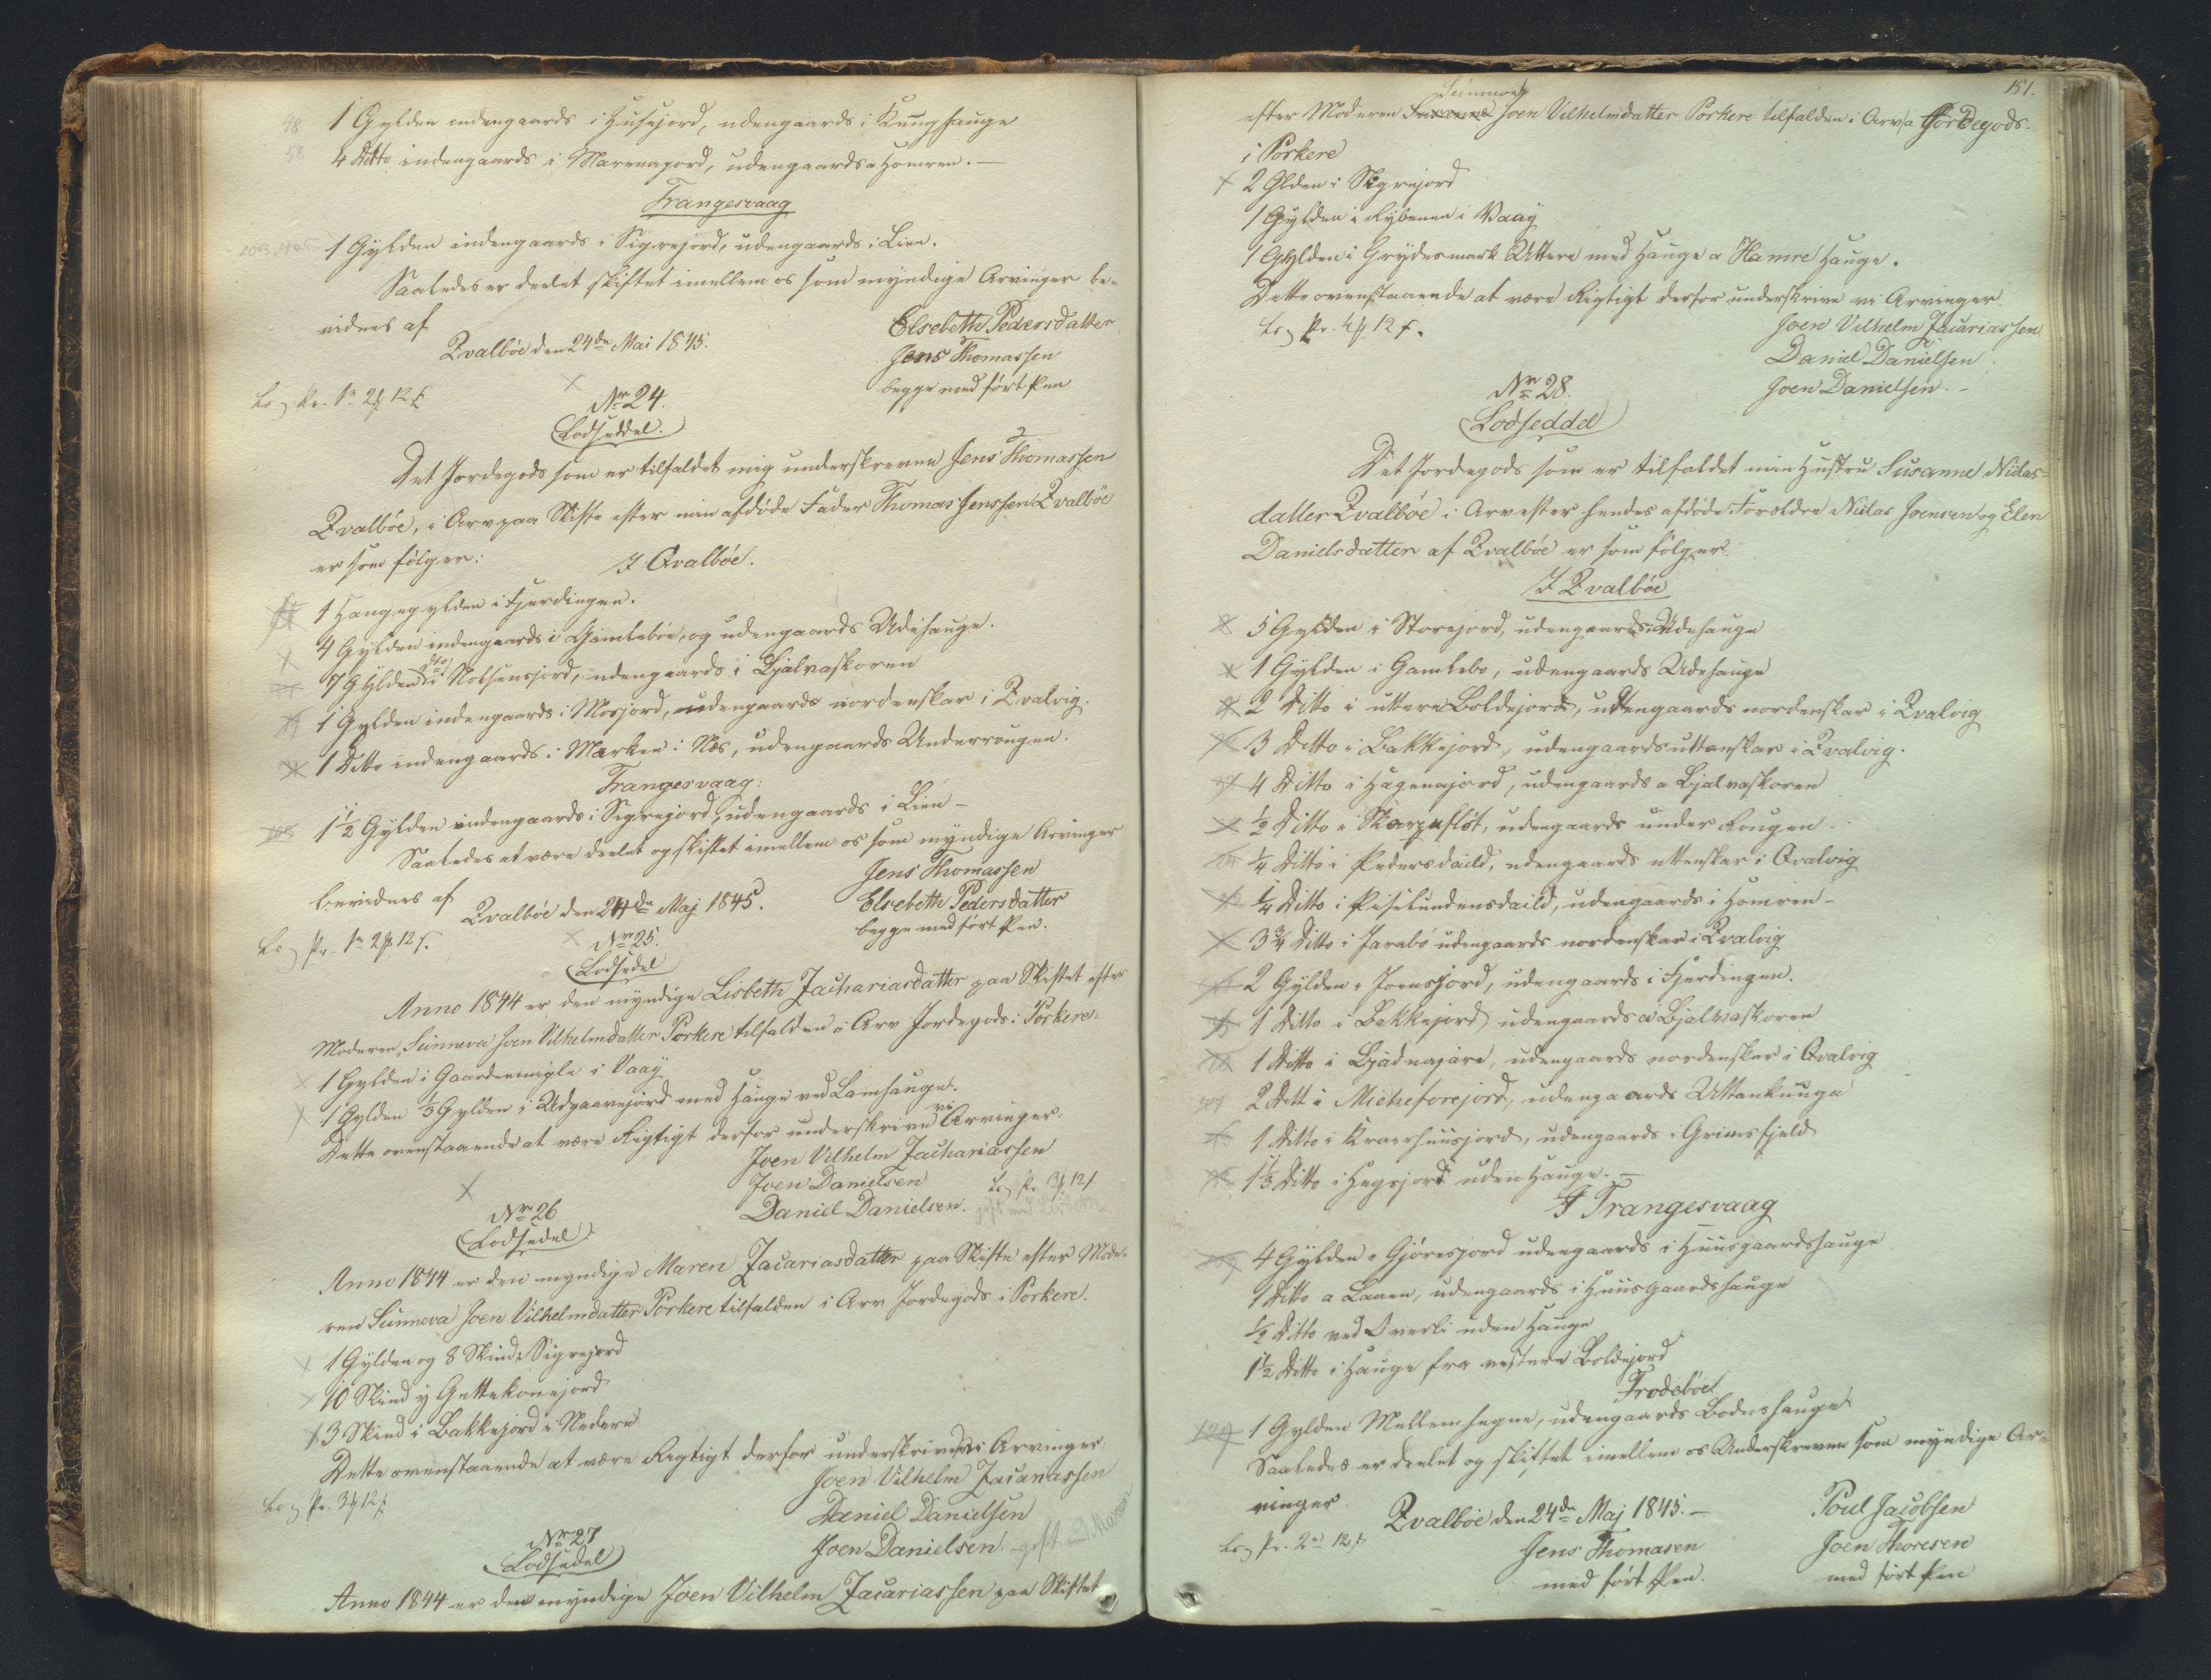 48 1 Gylden indengaards i Husejord, udengaards i Kunghauge
58 4 Ditto indengaards i Marenajord, udengaards a Homren. —
Frangesvaag
1 Gylden indengaards i Sigrejord, udengaards i Lien.
Saaledes er deelet skiftet imellem os som myndige Arvinger be-
vidnes af
Elsebeth Pedersdatter
Qvalböe den 24de Mai 1845.
Jens Thomassen
begge med fört Pen
No 24.
Lodseddel.
Det Jordegods som er tilfaldet mig underskrevne Jens Thomassen
Qvalböe, i Arv paa Skifte efter min afdøde Fader Thomas Jenssen Qvalböe
er som følger:
I Qvalböe.
1 Haugegylden i Fjerdingen.
4 Gylden indengaards i Gamleböe, og udengaards Udehauge.
7 Gylden dto i Nolsensjord, udengaards i Bjalvaskoren
1 Gylden indengaards i Mosjord, udengaards nordenskar i Qvalvig.
1 Ditto indengaards i Marken i Næs, udengaards Underrougen.
Frangesvaag:
1 1/2 Gylden indengaards i Sigrejord, udengaards i Lien —
Saaledes at være deelet og skiftet imellem os som myndige Arvinger
Jens Thomassen
bevidnes af
Qvalböe den 24de Maj 1845.
Elsebeth Pedersdatter
begge med fört Pen.
No 25.
Lodsedel
Anno 1844 er den myndige Lisbeth Jachariasdatter paa Skiftet efter
Moderen Sunneva Joen Vilhelmdatter Porkere tilfalden i Arv Jordegods i Porkere:
1 Gylden i Gaardenmigle i Vaag
1 Gylden 3 Gylden i Udgaarejord med Hauge ved Lamhauge.
Dette ovenstaaende at være Rigtigt derfor underskrive vi Arvinger:
Joen Vilhelm Jachariassen
Joen Danielsen
Daniel Danielsen.
No 26
Lodsedel
Anno 1844 er den myndige Maren Zacariasdatter paa Skifte efter Mode-
ren Sunneva Joen Vilhelmdatter Porkere tilfalden i Arv Jordegods i Porkere.
1 Gylden og 8 Skind i Sigrejord
10 Skind y Gettekonejord
13 Skind i Bakkejord i Nedere
Dette ovenstaaende at være Rigtigt derfor underskrive vi Arvinger
Joen Vilhelm Zacariassen
Daniel Danielsen
Joen Danielsen. gift med Maren
No 27
Lodsedel
Anno 1844 er den myndige Joen Vilhelm Zacariassen paa Skiftet
151.
Sunneva
efter Moderen Susanne Joen Vilhelmdatter Porkere tilfalden i Arv/a Jordegods.
i Porkere
2 Glden i Sigrejord
1 Gylden i Rybenen i Vaag
1 Gylden i Grydesmark Uttere med Hauge a Hamre Hauge.
Dette ovenstaaende at være Rigtigt derfor underskrive vi Arvinger.
Joen Vilhelm Zacariassen
Daniel Danielsen
Joen Danielsen. —
No 28.
Lodseddel
Det Jordegods som er tilfaldet min Hustru Susanne Niclas-
datter Qvalböe i Arv efter hendes afdöde Forældre Niclas Joensen og Elen
Danielsdatter af Qvalböe er som fölger.
I Qvalböe
5 Gylden i Storejord, udengaards Udehauge
1 Gylden i Gamlebo, udengaards Udehauge
2 Ditto i uttere Boldejord, udengaards nordenskar i Qvalvig
3 Ditto i Bakkejord, udengaards uttenskar i Qvalvig.
4 Ditto i Hagenajord, udengaards a Bjalvaskoren
1/2 Ditto i Skarpeflöt, udengaards under Rougen.
1/4 Ditto i Pedersdaild, udengaards uttenskar i Qvalvig
1/4 Ditto i Piselundensdaild, udengaards i Homren —
3 3/4 Ditto i Jarabö udengaards nordenskar i Qvalvig
2 Gylden i Joensjord, udengaards i Fjerdingen.
1 Ditto i Bakkejord udengaards a Bjalvaskoren
1 Ditto i Bjadnajare, udengaards nordenskar i Qvalvig
2 Ditt i Micheforejord, udengaards Uttankunga
1 Ditto i Kraerhuusjord, udengaards i Grimsfjeld
1 1/3 Ditto i Hegsjord uden Hauge. —
I Trangesvaag
4 Gylden i Gjöresjord udengaards i Huusgaardshauge
1 Ditto a Lanen, udengaards i Huusgaardshauge
1/2 Ditto ved Overli uden Hauge
1 1/2 Ditto i Hauge fra nestere Boldejord
Frodeböe
1 Gylden Mellemhegne, udengaards Bodeshauge
Saaledes er deelet og skiftet imellem os Underskrevne som myndige Ar-
vinger.
Qvalböe den 24de Maj 1845. —
Poul Jacobsen
Jens Thomasen
Joen Thoresen
med fört Pen.
med fört Pen